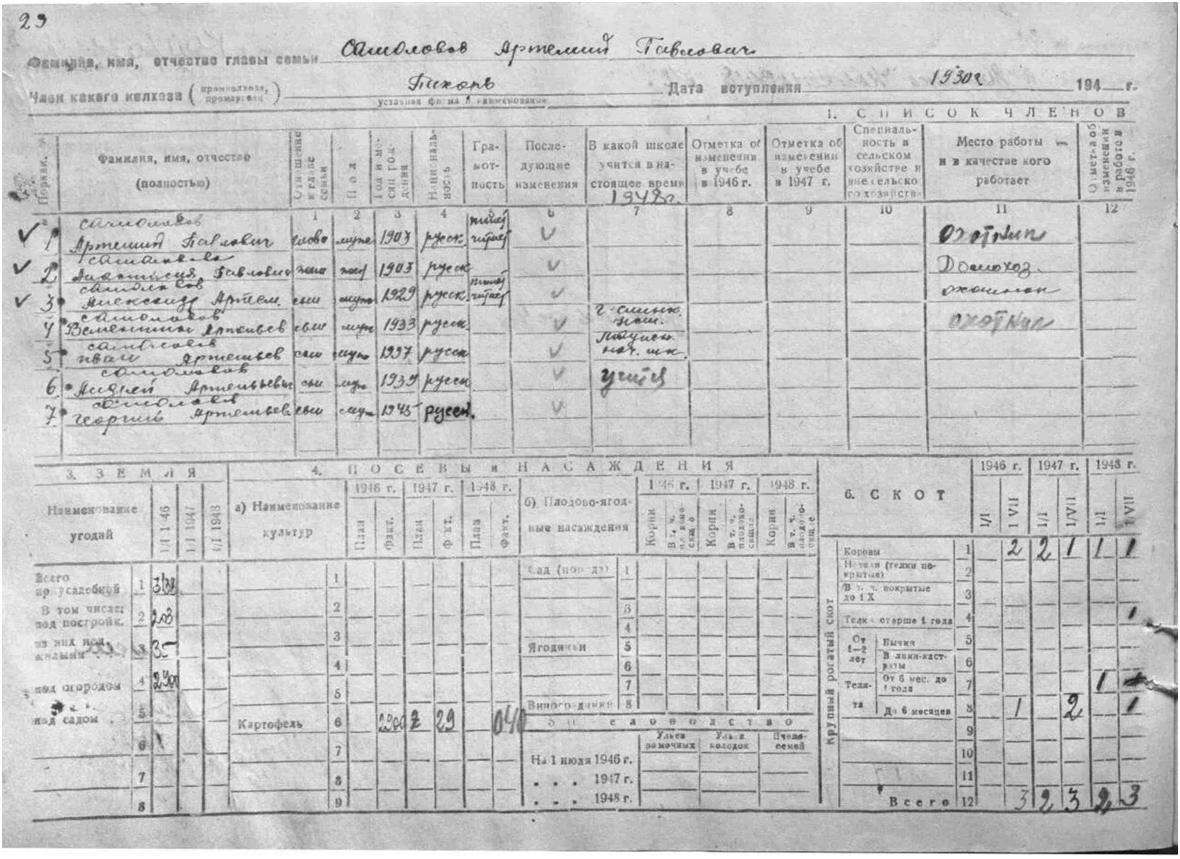 29
Фамилия, имя, отчество главы семьи Самоловов Артемий Павлович
Член какого колхоза (промколхоза, промартели) Пихорь Дата вступления 1930г 194 г.
уставная форма и наименование
1. СПИСОК ЧЛЕНОВ
Фамилия, имя, отчество (полностью)
Отношение к главе семьи
Пол
Год и месяц рождения
Национальность
Грамотность
Последующие изменения
В какой школе учится в настоящее время 1948г.
Отметка об изменении в учебе в 1946 г.
Отметка об изменении в учебе в 1947 г.
Специальность в сельском хозяйстве и вне сельского хозяйств
Место работы и в качестве кого работает
Отметка об изменении в работе в 1946 г.
1 2 3 4 5 6 7 8 9 10 11 12
Самоловов
1 Артемий Павлович глава муж 1903 русск. читает охотник
2 Павловна жена жен 1903 русск Домохоз.
Самоловов
3 Александр Артем. сын муж 1929 русск. читает
Самоловов
4 Артемьев сын муж 1933 русск. охотник
Самоловов
5 Иван Артемьев сын муж 1937 русск нач. шк.
Самоловов
6 Андрей Артемьевич сын муж 1939 русск учится
Самоловов
7 Георгий Артемьев. сын муж 1945 русск.
3. ЗЕМЛЯ
Наименование угодий
1/I 1946
1/I 1947
1/I 1948
Всего приусадебной 1
В том числе: под постройк. 2 203
из них под жилыми 35
под огородом 4 2900
под садом 5
6
7
8
4. ПОСЕВЫ и НАСАЖДЕНИЯ
а) Наименование культур
1946 г. 1947 г. 1948 г.
План Факт. План Факт. План Факт.
1
2
3
4
5
Картофель 6 2900 29 040
7
8
9
б) Плодово-ягодные насаждения
1946 г. 1947 г. 1948 г.
Корни В т. ч. плодоносящие Корни В т. ч. плодоносящие Корни В т. ч. плодоносящие
Сад (порода) 1
3
4
Ягодники 5
6
7
Виноградники 8
5. Пчеловодство
Ульев рамочных Ульев колодок Пчелосемей
На 1 июля 1946 г.
. . . 1947 г.
. . . 1948 г.
6. СКОТ
1946 г. 1947 г. 1948 г.
1/I 1 VII 1/I 1/VII 1/I 1/VII
Крупный рогатый скот
Коровы 1 2 2 1 1 1
Нетели (телки покрытые) 2
В т. ч. покрытые до 1 X 3
Телки старше 1 года 4 1
От 1—2 лет Бычки 5
6
Телята От 6 мес. до 1 года 7 1
До 6 месяцев 8 1 2 1
9
10
11
Всего 12 3 2 3 2 3